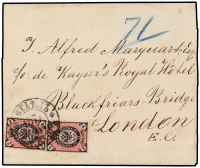 71
J. Alfred Marquart, Esq
c/o: de Kayser's Royal Hotel
Blackfriars Bridge
London
E.C.